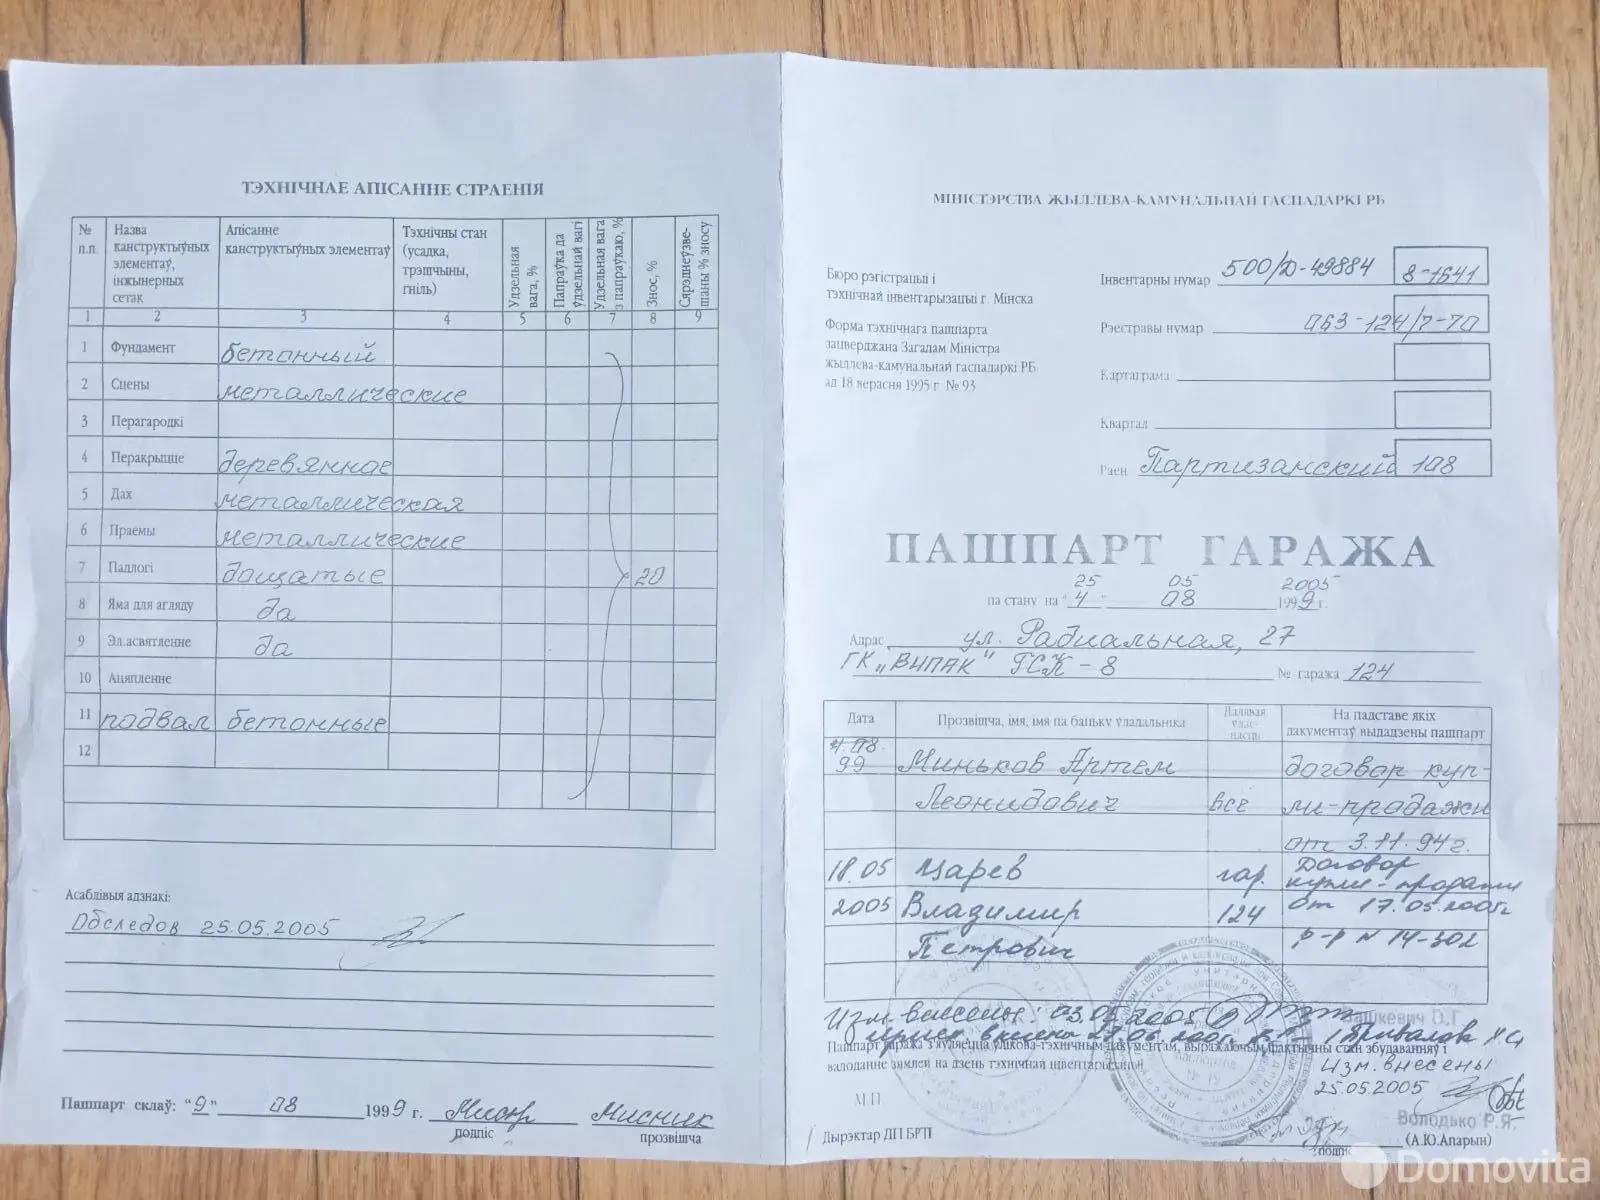 ТЭХНІЧНАЕ АПІСАННЕ СТРАЕНІЯ
№ п.п. Назва канструктыўных элементаў, інжынерных сетак Апісанне канструктыўных элементаў Тэхнічны стан (усадка, трэшчыны, гніль) Удзельная вага, % Папраўка да ўдзельнай вагі Удзельная вага з папраўкаю, % Знос, % Сярэднеўзвешаны % зносу
1 2 3 4 5 6 7 8 9
1 Фундамент бетонный
2 Сцены металлические
3 Перагародкі
4 Перакрыцце деревянное
5 Дах металлическая
6 Праемы металлические
7 Падлогі дощатые 20
8 Яма для агляду да
9 Эл.асвятленне да
10 Ацяпленне
11 подвал бетонные
12
Асаблівыя адзнакі:
Обследов 25.05.2005
Пашпарт склаў: "9" 08 1999 г. Мисник
подпіс прозвішча
МІНІСТЭРСТВА ЖЫЛЛЕВА-КАМУНАЛЬНАЙ ГАСПАДАРКІ РБ
Бюро рэгістрацыі і
тэхнічнай інвентарызацыі г. Мінска
Форма тэхнічнага пашпарта
зацверджана Загадам Міністра
жыллева-камунальнай гаспадаркі РБ
ад 18 верасня 1995 г № 93
Інвентарны нумар 500/Д-49884 8-1641
Рэестравы нумар 063-124/7-70
Картаграма
Квартал
Раен Партизанский 108
ПАШПАРТ ГАРАЖА
25 05 2005
па стану на "4" 08 1999 г.
Адрас ул. Радиальная, 27
ГК "ВИПАК" ГСК-8 № гаража 124
Дата Прозвішча, імя, імя па бацьку ўладальніка Далявая ўласнасць На падставе якіх дакументаў выдадзены пашпарт
4.08.
99 Миньков Артем договор куп-
Леонидович все ли-продажи
от 3.11.94г.
18.05 Царев гар. Договор
купли-продажи
2005 Владимир 124 от 17.05.2005г
Петрович р-р N 14-302
Изм. внесены: 03.05.2005
Вашкевич В.Г.
Пашпарт гаража з'яўляецца ўлікова-тэхнічным дакументам, выражаючым фактычны стан збудаванняў і
валоданне зямлей на дзень тэхнічнай інвентарызацыі
Изм. внесены
25.05.2005
М.П.
Володько Р.Я.
Дырэктар ДП БРТІ (А.Ю.Апарын)
Domovita